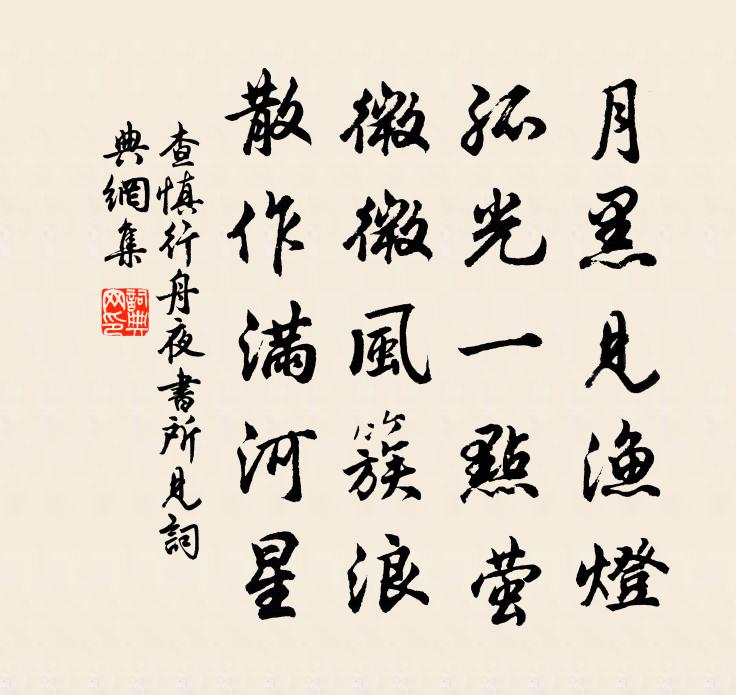 月黑見漁燈
孤光一點螢
微微風簇浪
散作滿河星
查慎行舟夜書所見詞
典網集
詞典
网印